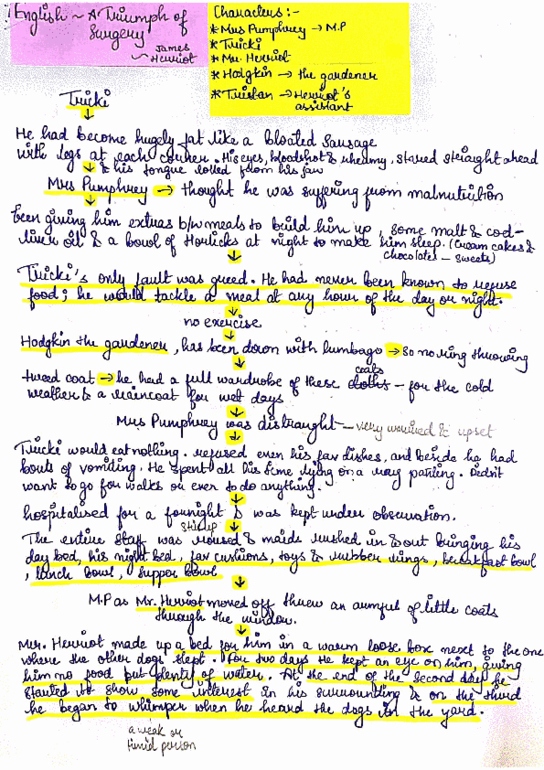 English ~ A Triumph of
Surgery
~ James
Herriot
Characters :-
* Mrs Pumphrey → M.P
* Tricki
* Mr. Herriot
* Hodgkin → the gardener
* Tristan → Herriot's
assistant
Tricki
↓
He had become hugely fat like a bloated sausage
with legs at each corner. His eyes, bloodshot & rheumy, stared straight ahead
↓ & his tongue lolled from his jaw
Mrs Pumphrey → thought he was suffering from malnutrition
↓
Been giving him extras b/w meals to build him up, some malt & cod-
liver oil & a bowl of Horlicks at night to make him sleep. (Cream cakes &
chocolates – sweets)
↓
Tricki's only fault was greed. He had never been known to refuse
food; he would tackle a meal at any hour of the day or night.
↓
no exercise
↓
Hodgkin the gardener, has been down with lumbago → so no ring throwing
coats
tweed coat → he had a full wardrobe of these cloths – for the cold
weather & a raincoat for wet days
↓
Mrs Pumphrey was distraught – very worried & upset
↓
Tricki would eat nothing. refused even his fav dishes, and beside he had
bouts of vomiting. He spent all his time lying on a rug panting. Didn't
want to go for walks or even to do anything.
↓
hospitalised for a fornight & was kept under observation.
stir up ↓
The entire staff was roused & maids rushed in & out bringing his
day bed, his night bed, fav cushions, toys & rubber rings, breakfast bowl
, lunch bowl, supper bowl
↓
M.P as Mr. Herriot moved off threw an armful of little coats
through the window.
↓
Mr. Herriot made up a bed for him in a warm loose box next to the one
where the other dogs slept. For two days He kept an eye on him, giving
him no food but plenty of water. At the end of the second day he
started to show some interest in his surrounding & on the third
he began to whimper when he heard the dogs in the yard.
↓
a weak or
timid person